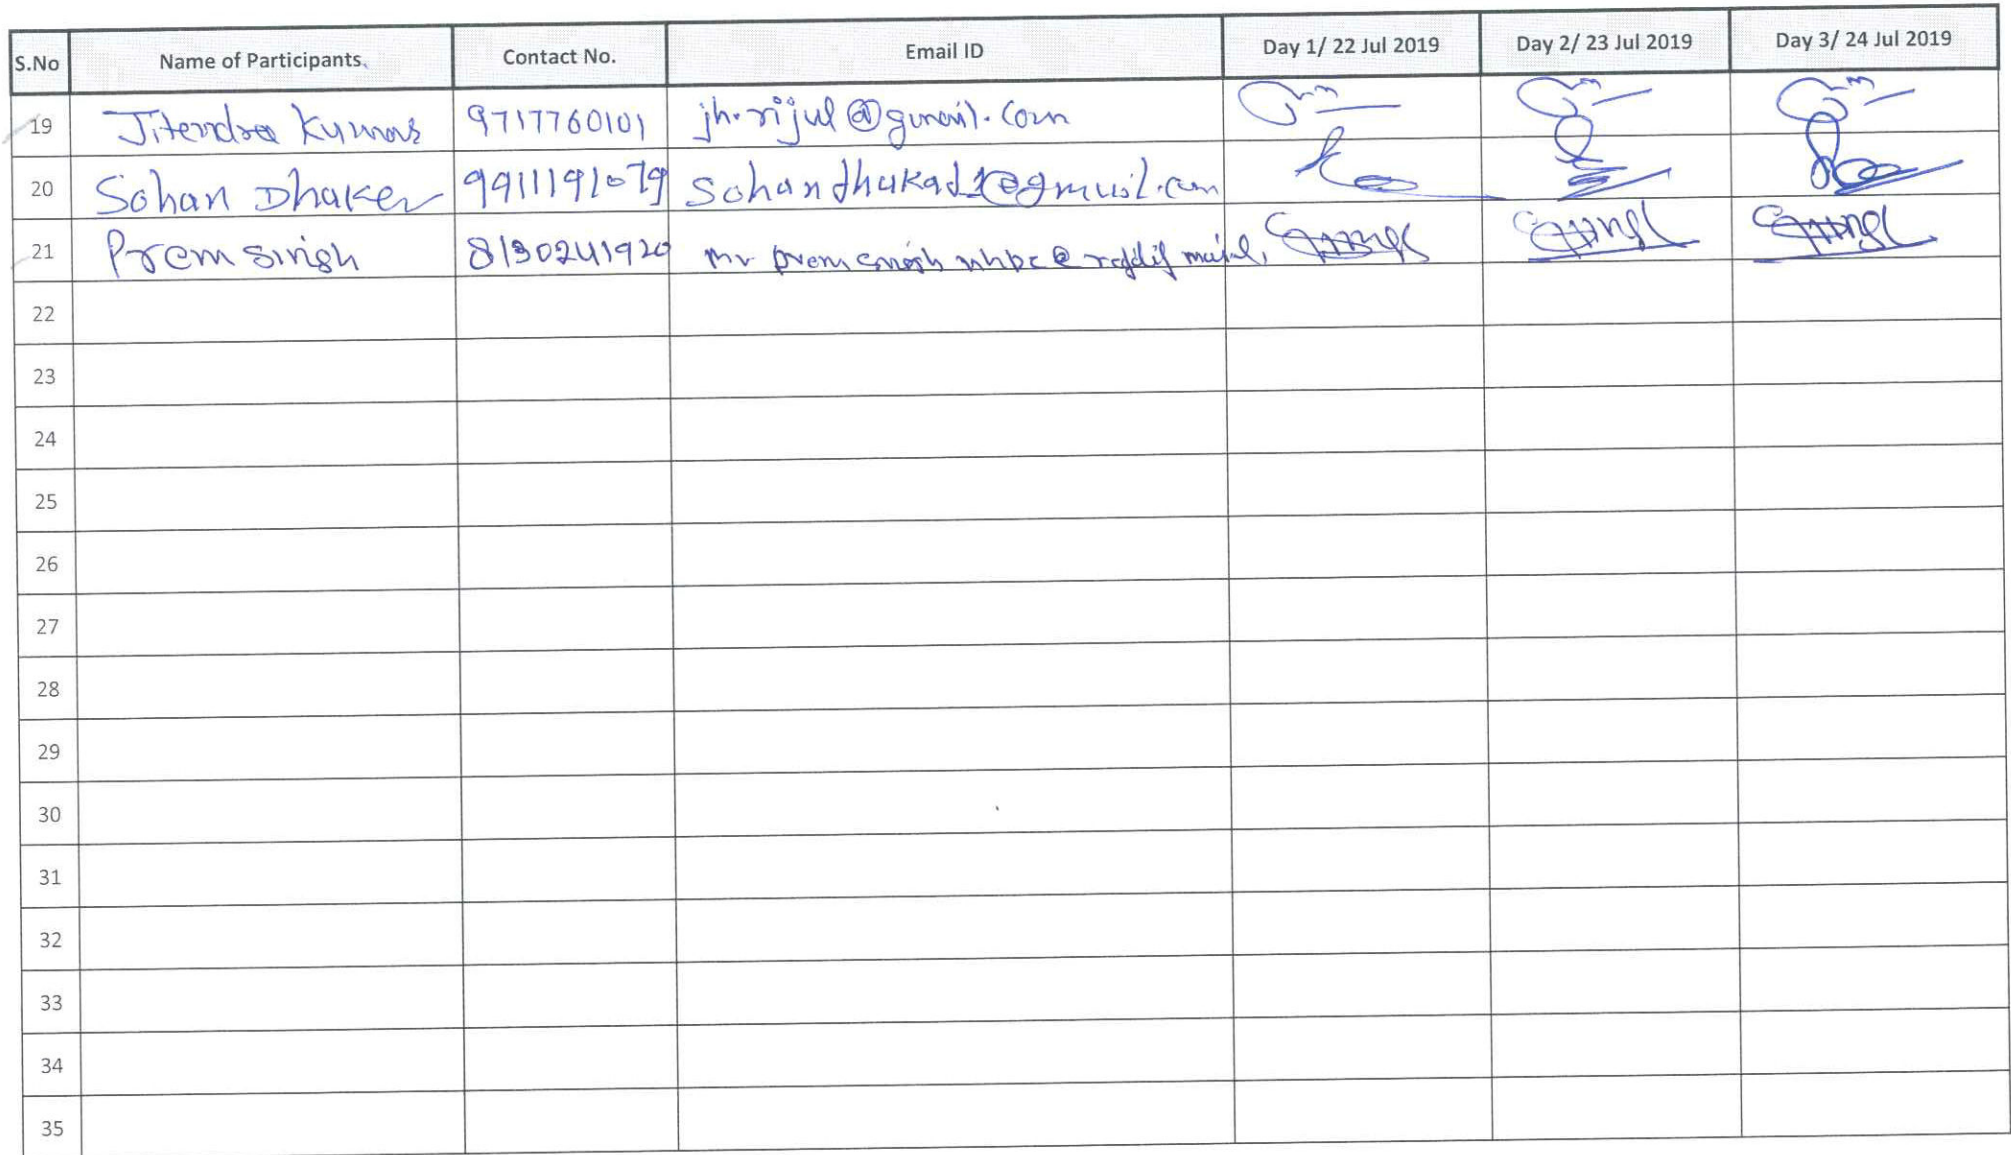 S.No Name of Participants Contact No. Email ID Day 1/ 22 Jul 2019 Day 2/ 23 Jul 2019 Day 3/ 24 Jul 2019
19 Jitendra Kumar 9717760101 jh.rijul@gmail.com
20 Sohan Dhaker 9911191079 Sohandhakad1@gmail.com
21 Prem Singh 8130241920 mr
22
23
24
25
26
27
28
29
30
31
32
33
34
35